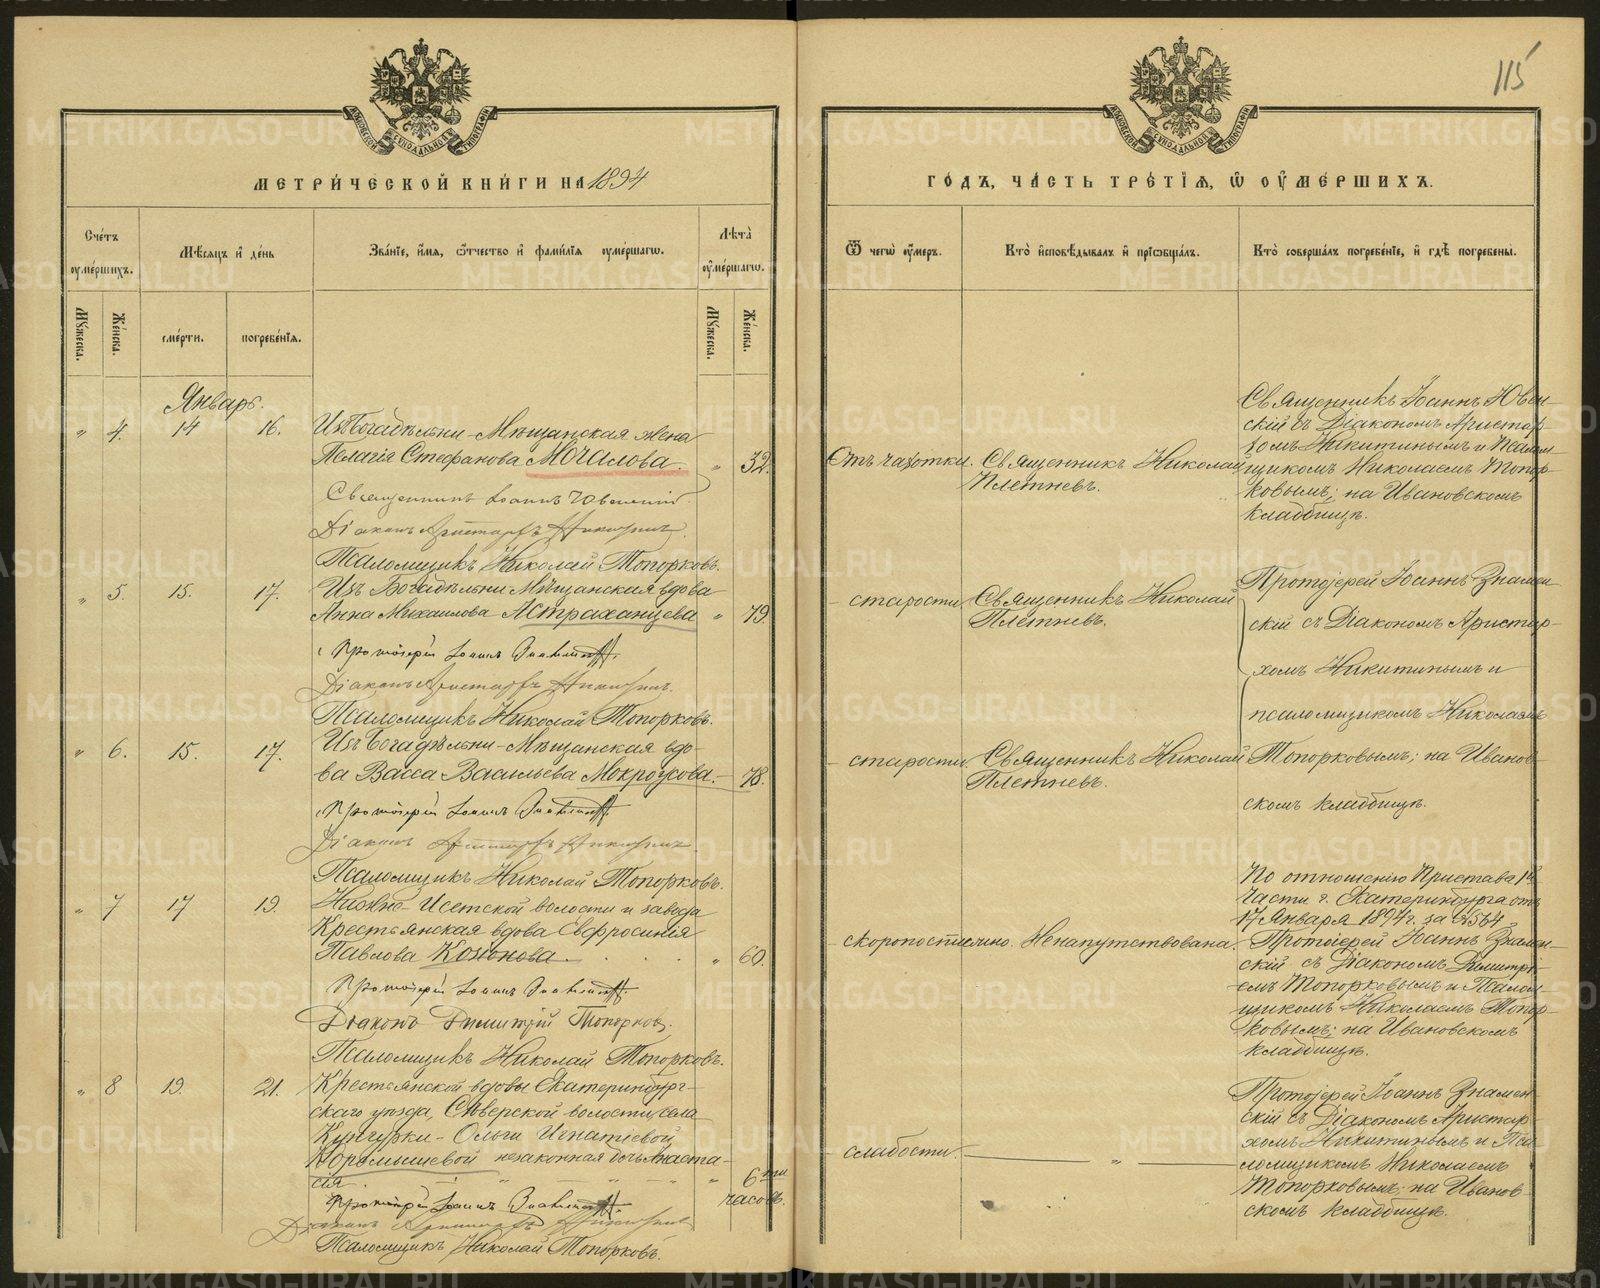 115
МЕТРИ́ЧЕСКОЙ КНИ́ГИ НА 1894
ГО́ДЪ, ЧА́СТЬ ТРЕ́ТІЯ, Ѡ҆ ОУ҆МЕ́РШИХЪ.
Сче́тъ оумершихъ.
Мѣсяцъ и день
Зва́ніе, и҆мя, ѻ҆тчество и҆ фами́лія оумершагѡ.
Лѣта̀ оу҆мершагѡ.
Ѿ чегѡ̀ оу҆меръ.
Кто̀ и҆сповѣдывалъ и҆ прїѡбщалъ.
Кто̀ совершалъ погребе́ніе, и҆ гдѣ̀ погребены.
Мꙋжеска.
Же́нска.
сме́рти.
погребе́нія.
Мꙋжеска.
Же́нска.
Январь.
" 4. 14 16.
Изъ Богадѣльни - Мѣщанская жена
Пелагія Стефанова Мочалова. " 32.
Священникъ Іоаннъ Ювенскій
Діаконъ Аристархъ Никитинъ.
Псаломщикъ Николай Топорковъ.
Отъ чахотки.
Священникъ Николай
Плетневъ.
Священникъ Іоаннъ Ювен-
скій съ Діакономъ Аристар-
хомъ Никитинымъ и Псалом-
щикомъ Николаемъ Топор-
ковымъ; на Ивановскомъ
кладбищѣ.
" 5. 15. 17.
Изъ Богадѣльни - Мѣщанская вдова
Анна Михаилова Астраханцева " 79.
Протоіерей Іоаннъ Знаменскій.
Діаконъ Аристархъ Никитинъ.
Псаломщикъ Николай Топорковъ.
- старости.
Священникъ Николай
Плетневъ.
Протоіерей Іоаннъ Знамен-
скій съ Діакономъ Аристар-
хомъ Никитинымъ и
псаломщикомъ Николаемъ
Топорковымъ; на Иванов-
скомъ кладбищѣ.
" 6. 15. 17.
Изъ Богадѣльни - Мѣщанская вдо-
ва Васса Васильева Мокроусова. - 78.
Протоіерей Іоаннъ Знаменскій.
Діаконъ Аристархъ Никитинъ.
Псаломщикъ Николай Топорковъ.
- старости.
Священникъ Николай
Плетневъ.
" 7 17 19.
Нижне-Исетской волости и завода
Крестьянская вдова Евфросинія
Павлова Козіонова. " 60.
Протоіерей Іоаннъ Знаменскій.
Діаконъ Димитрій Топорковъ.
Псаломщикъ Николай Топорковъ.
- скоропостижно.
Ненапутствована.
По отношенію Пристава 1й
Части г. Екатеринбурга отъ
17 Января 1894 г. за № 564
Протоіерей Іоаннъ Знамен-
скій съ Діакономъ Димитрі-
емъ Топорковымъ и Псалом-
щикомъ Николаемъ Топор-
ковымъ; на Ивановскомъ
кладбищѣ.
" 8 19. 21.
Крестьянской вдовы Екатеринбург-
скаго уѣзда, Сѣверской волости, села
Кунгурки - Ольги Игнатіевой
Коромышевой незаконная дочь Анаста-
сія. " 6ти
часовъ.
Протоіерей Іоаннъ Знаменскій.
Діаконъ Аристархъ Никитинъ
Псаломщикъ Николай Топорковъ.
- слабости.
"
Протоіерей Іоаннъ Знамен-
скій съ Діакономъ Аристар-
хомъ Никитинымъ и Пса-
ломщикомъ Николаемъ
Топорковымъ; на Иванов-
скомъ кладбищѣ.
METRIKI.GASO-URAL.RU